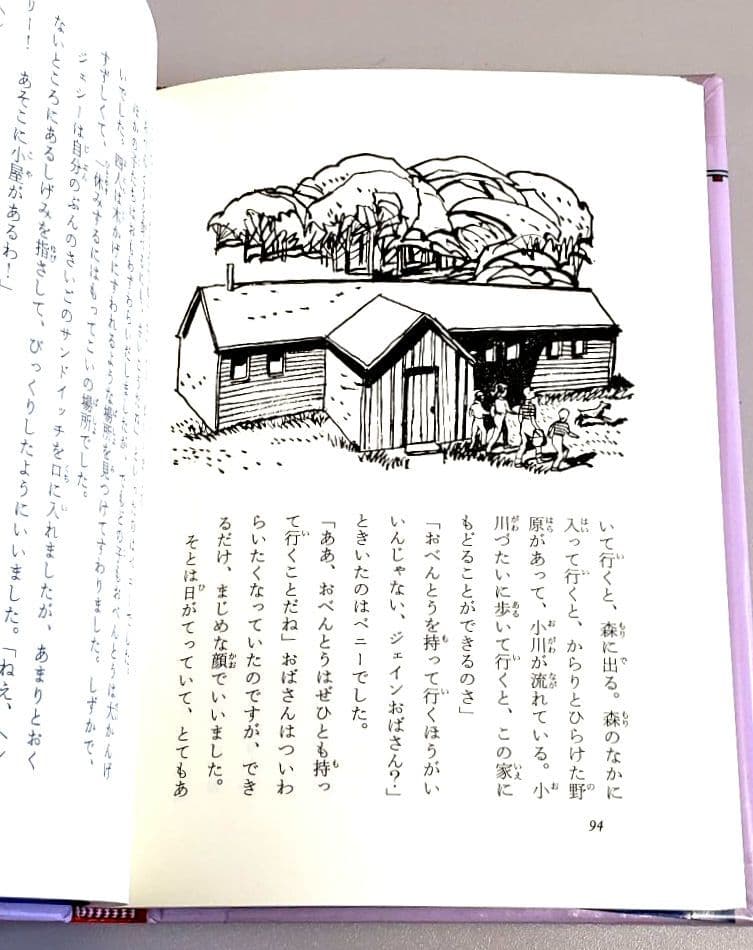 いて行くと、森に出る。森のなかに
入って行くと、からりとひらけた野
原があって、小川が流れている。小
川づたいに歩いて行くと、この家に
もどることができるのさ」
「おべんとうを持って行くほうがい
いんじゃない、ジェインおばさん？」
ときいたのはベニーでした。
「ああ、おべんとうはぜひとも持っ
て行くことだね」おばさんはついわ
らいたくなっていたのですが、でき
るだけ、まじめな顔でいいました。
そとは日がてっていて、とてもあ
94
いでした。四人は木かげにすわれるような場所を見つけてすわりました。しずかで、
すずしくて、一休みするにはもってこいの場所でした。
ジェシーは自分のぶんのさいごのサンドイッチを口に入れましたが、あまりとおく
ないところにあるしげみを指さして、びっくりしたようにいいました。「ねえ、ヘン
リー！　あそこに小屋があるわ！」